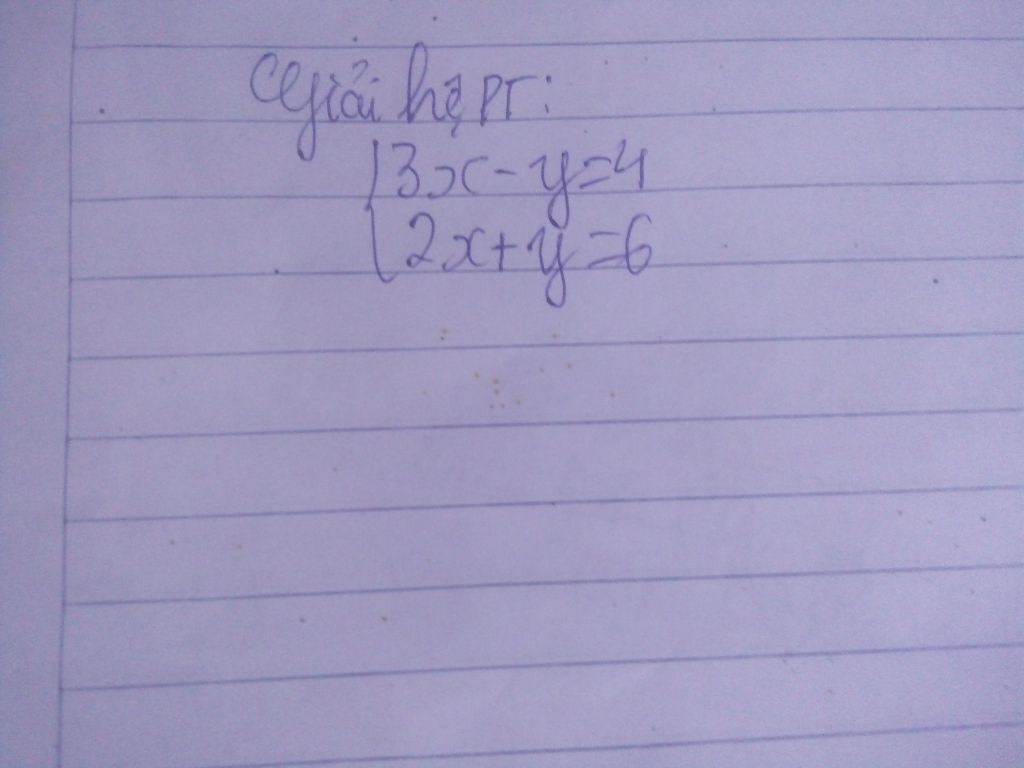 Giải hệ PT:
3x - y = 4
2x + y = 6